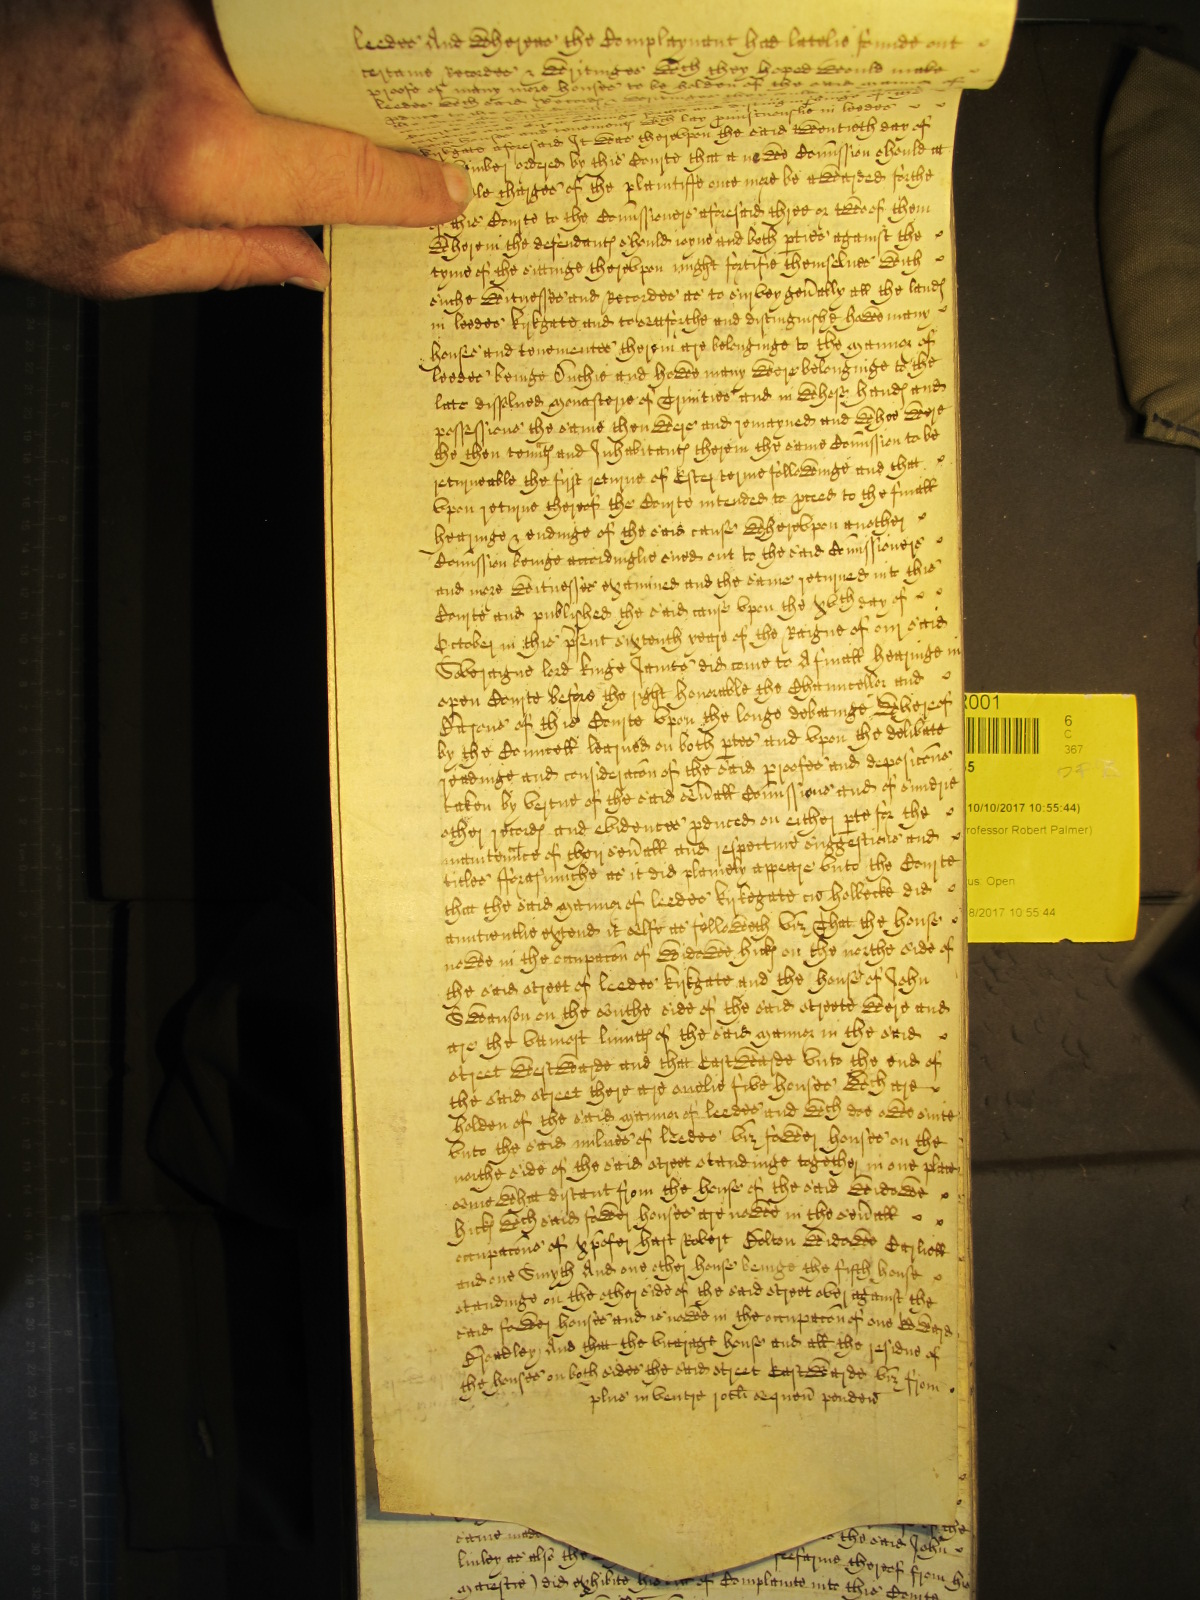 leedes And Whereas the Complaynant had latelie founde out
certaine Recordes & Writinges Wch they hoped Would make
proofe of many more houses to be holden of the said mannor of
leedes Wch said Records
Wch lay promiscuouslie in leedes
kirkgate aforesaid It Was therevpon the said twentieth day of
ordered by this Courte that a newe Comission should at
charges of the plaintiffe once more be aWarded forthe
of this Courte to the Comissioners aforesaid three or tWoe of them
Wherein the defendantes should ioyne and both pties against the
tyme of the sittinge therevpon might fortifie themselues With
suche Witnesses and Recordes as to survey genally all the landes
in leedes kirkgate and to setforthe and distinguishe howe many
houses and tenementes therein are belonginge to the mannor of
leedes beinge Duchie and howe many Were belonginge to the
late dissolued monasterie of Trinities and in Whose handes and
possessions the same then Were and remayned and Whoe Were
the then tennts and Inhabitants therein the same Comission to be
returneable the first returne of Ester terme followinge and that
vpon returne thereof the Courte intended to pceed to the finall
hearinge & endinge of the said cause Wherevpon another
Comission beinge accordinglie sued out to the said Comissioners
and more Witnesses examined and the same returned into this
Courte and published the said cause vpon the xvth day of
October in this psent sixtenth yeare of the Raigne of our said
Soveraigne lord kinge James did come to A finall hearinge in
open Courte before the right honorable the Chauncellor and
of this Courte vpon the longe debatinge Whereof
by the Councell learned on both ptes and vpon the delibate
readinge and consideracon of the said proofes and deposicons
taken by vertue of the said seuall Comissions and of sundrie
other records and evidences pduced on either pte for the
maintennce of their seuall and respective suggestions and
titles fforasmuche as it did plainely appeare vnto the Courte
that the said mannor of leedes kirkegate cu holbecke did
aunctientlie extend it selfe as followeth viz That the house
nowe in the occupacon of Widowe hicks on the northe side of
the said street of leedes kirkgate and the house of John
SWanson on the southe side of the said streete Were and
are the vtmost limits of the said mannor in the said
street WestWarde and that EastWarde vnto the end of
the said street there are onelie five houses Wch are
holden of the said mannor of leedes and Wch doe oWe suite
vnto the said milnes of leedes viz fower houses on the
northe side of the said street standinge together in one place
some What distant from the house of the said Widowe
hicks Wch said fower houses are nowe in the seuall
occupacons of Xpofer hart Robert Colton Widowe
and one Smyth And one other house beinge the fifth house
standinge on the other side of the said street over against the
said fower houses and is nowe in the occupacon of one EdWard
And that the vicarage house and all the residue of
the houses on both sides the said street EastWarde viz from
plus inventre rotli sequen penden
same
the said John
linley as also the
feefarme thereof from his
majestie) did exhibite his of Complainte into this Courte
R001
6
C
367
10/10/2017 10:55:44)
rofessor Robert Palmer)
us: Open
8/2017 10:55:44